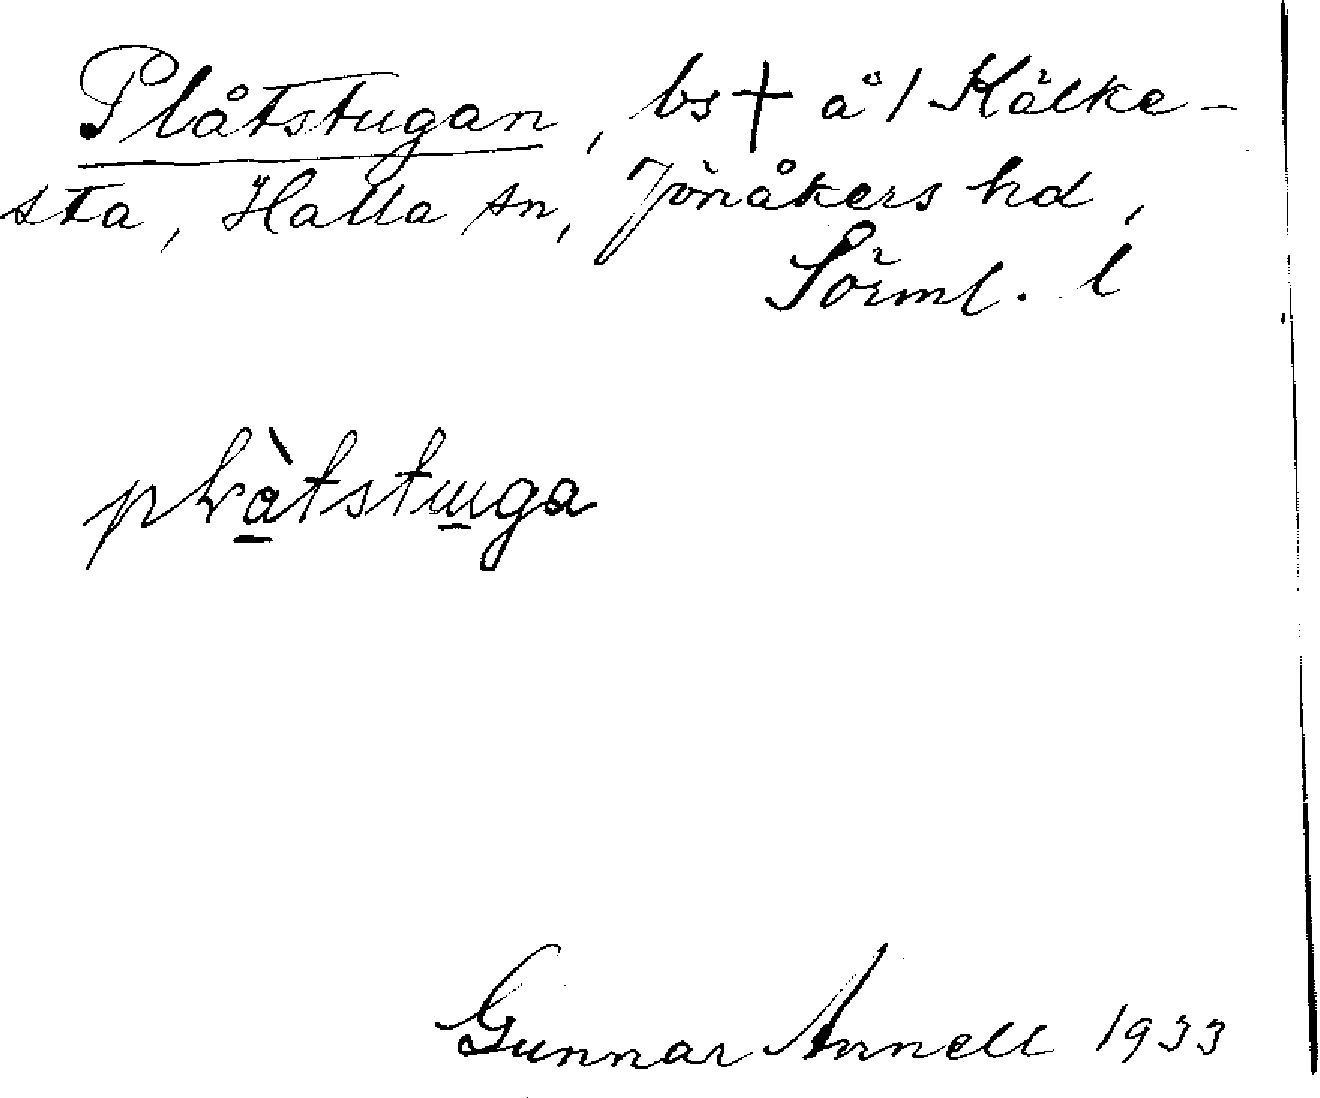 Plåtstugan, bs † å / Kälke-
sta, Halla sn, Jönåkers hd,
Sörml. l
plàtstuga
Gunnar Annell 1933